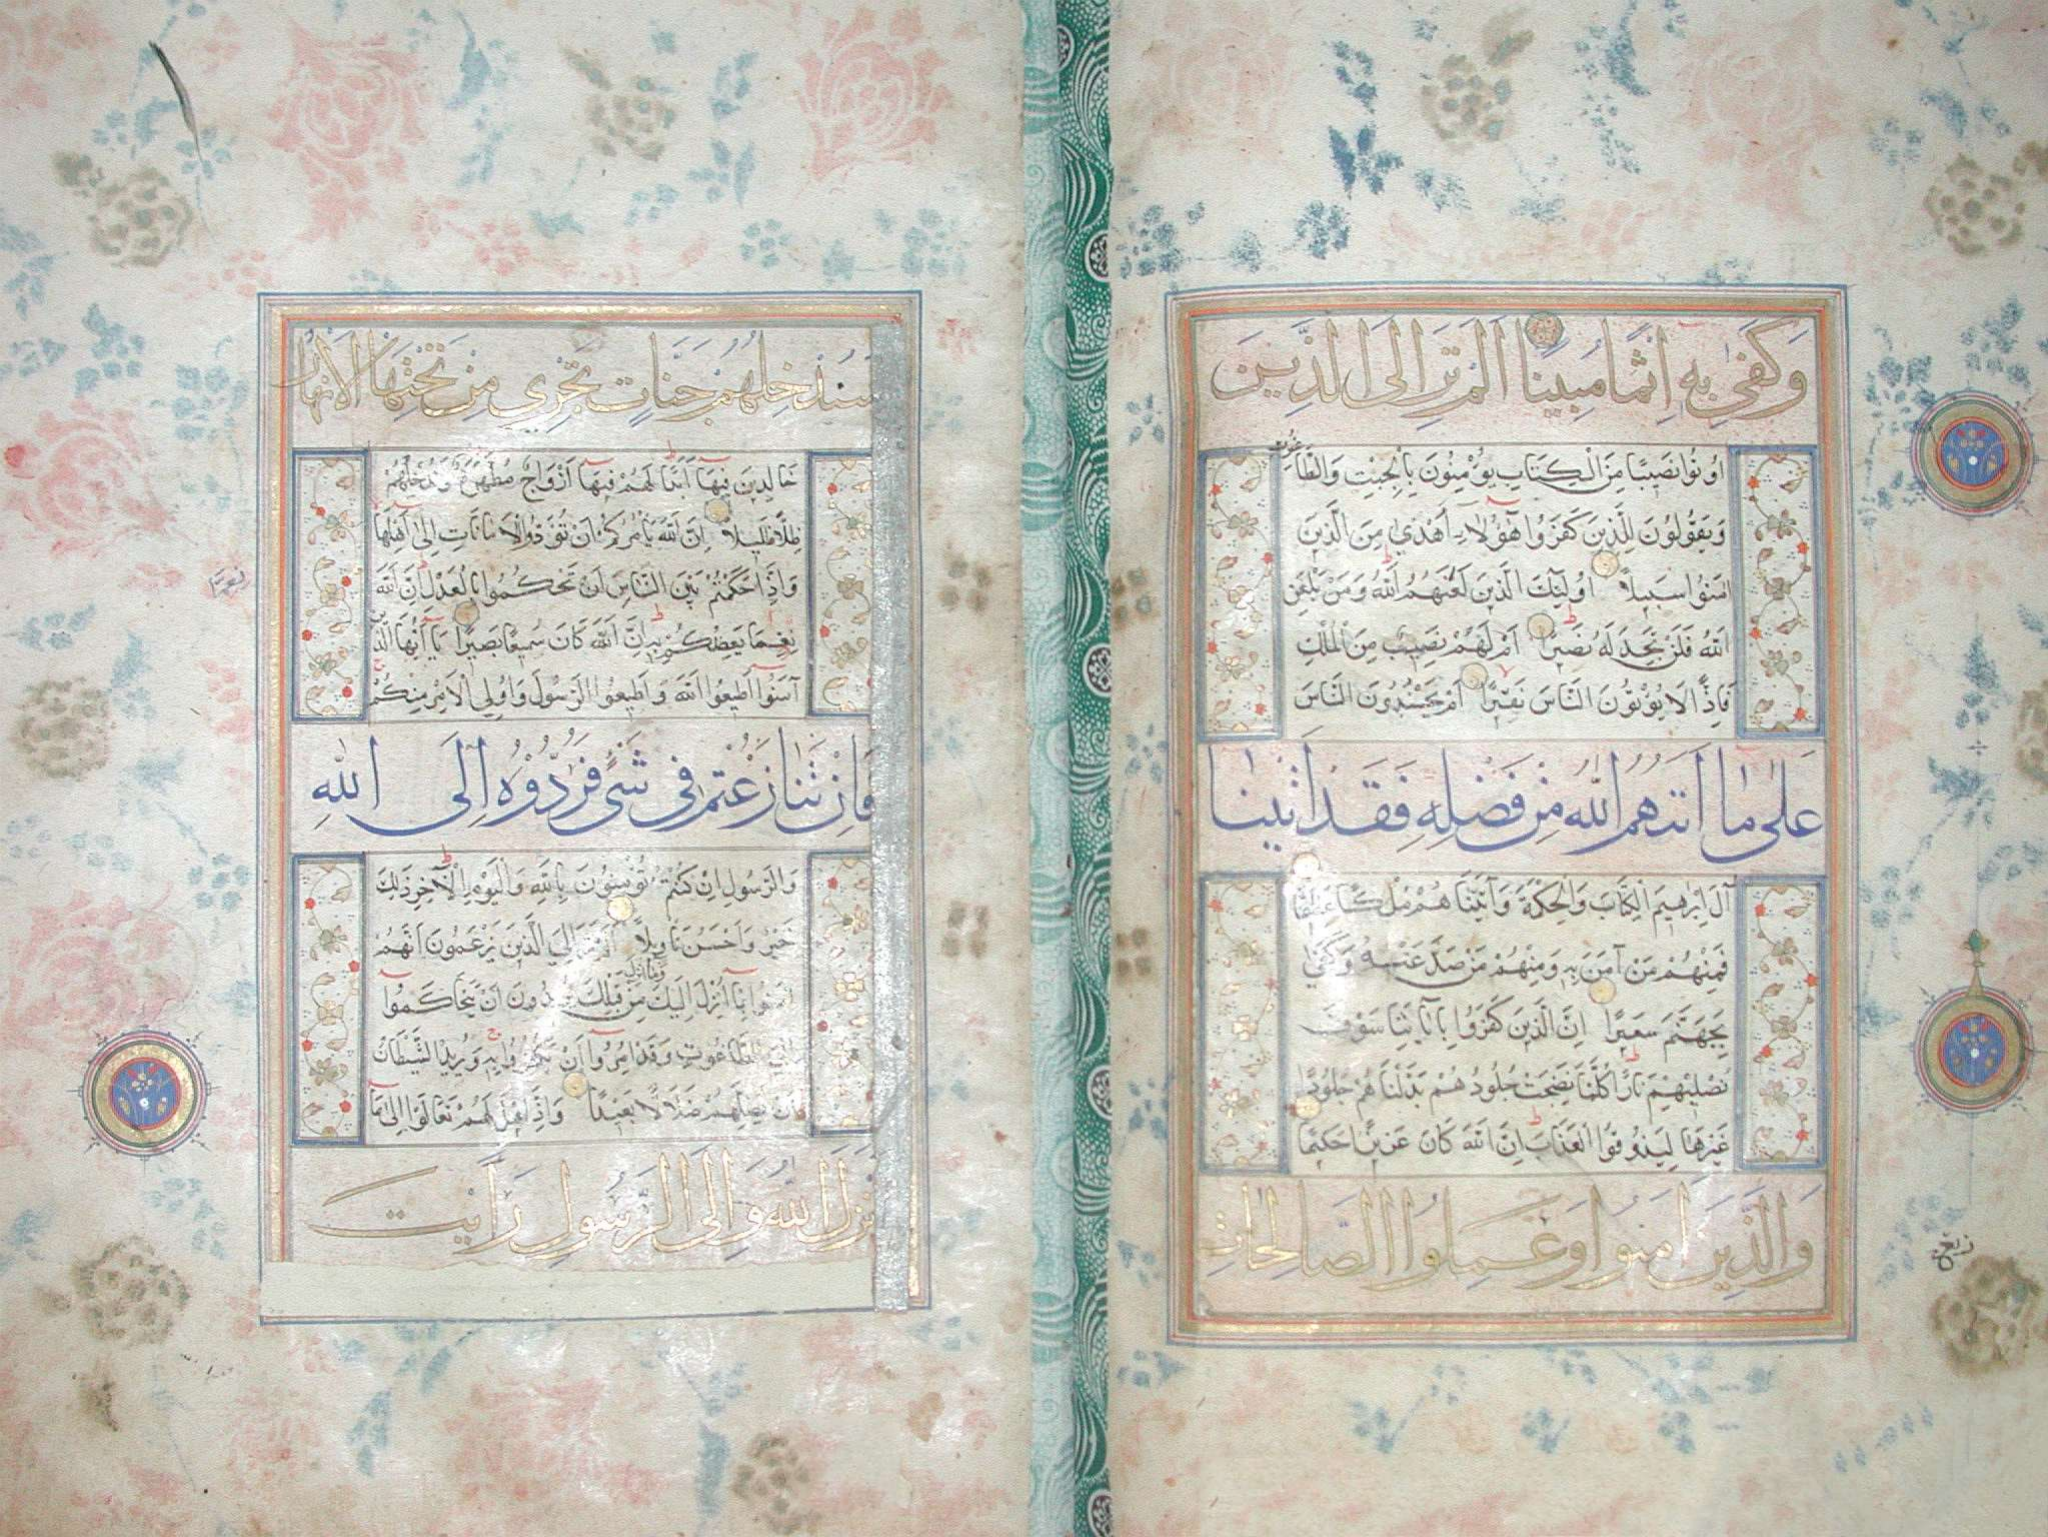 وَكَفَىٰ بِهِ اِثْمًا مُبِينًا اَلَمْ تَرَ اِلَى الَّذِينَ
اُوتُوا نَصِيبًا مِنَ الْكِتَابِ يُؤْمِنُونَ بِالْجِبْتِ وَالطَّاغُوتِ
وَيَقُولُونَ لِلَّذِينَ كَفَرُوا هٰؤُلَاءِ اَهْدٰى مِنَ الَّذِينَ
اٰمَنُوا سَبِيلًا اُولٰئِكَ الَّذِينَ لَعَنَهُمُ اللّٰهُ وَمَنْ يَلْعَنِ
اللّٰهُ فَلَنْ تَجِدَ لَهُ نَصِيرًا اَمْ لَهُمْ نَصِيبٌ مِنَ الْمُلْكِ
فَاِذًا لَا يُؤْتُونَ النَّاسَ نَقِيرًا اَمْ يَحْسُدُونَ النَّاسَ
عَلٰى مَا اٰتٰيهُمُ اللّٰهُ مِنْ فَضْلِهِ فَقَدْ اٰتَيْنَا
آلَ اِبْرٰهِيمَ الْكِتَابَ وَالْحِكْمَةَ وَآتَيْنَاهُمْ مُلْكًا عَظِيمًا
فَمِنْهُمْ مَنْ آمَنَ بِهِ وَمِنْهُمْ مَنْ صَدَّ عَنْهُ وَكَفٰى
بِجَهَنَّمَ سَعِيرًا اِنَّ الَّذِينَ كَفَرُوا بِآيَاتِنَا سَوْفَ
نُصْلِيهِمْ نَارًا كُلَّمَا نَضِجَتْ جُلُودُهُمْ بَدَّلْنَاهُمْ جُلُودًا
غَيْرَهَا لِيَذُوقُوا الْعَذَابَ اِنَّ اللّٰهَ كَانَ عَزِيزًا حَكِيمًا
وَالَّذِينَ اٰمَنُوا وَعَمِلُوا الصَّالِحَاتِ
سَنُدْخِلُهُمْ جَنَّاتٍ تَجْرِي مِنْ تَحْتِهَا الْاَنْهَارُ
خَالِدِينَ فِيهَا اَبَدًا لَهُمْ فِيهَا اَزْوَاجٌ مُطَهَّرَةٌ وَنُدْخِلُهُمْ
ظِلًّا ظَلِيلًا اِنَّ اللّٰهَ يَأْمُرُكُمْ اَنْ تُؤَدُّوا الْاَمَانَاتِ اِلٰى اَهْلِهَا
وَاِذَا حَكَمْتُمْ بَيْنَ النَّاسِ اَنْ تَحْكُمُوا بِالْعَدْلِ اِنَّ اللّٰهَ
نِعِمَّا يَعِظُكُمْ بِهِ اِنَّ اللّٰهَ كَانَ سَمِيعًا بَصِيرًا يَا اَيُّهَا الَّذِينَ
آمَنُوا اَطِيعُوا اللّٰهَ وَاَطِيعُوا الرَّسُولَ وَاُولِي الْاَمْرِ مِنْكُمْ
فَاِنْ تَنَازَعْتُمْ فِي شَيْءٍ فَرُدُّوهُ اِلَى اللّٰهِ
وَالرَّسُولِ اِنْ كُنْتُمْ تُؤْمِنُونَ بِاللّٰهِ وَالْيَوْمِ الْآخِرِ ذٰلِكَ
خَيْرٌ وَاَحْسَنُ تَأْوِيلًا اَلَمْ تَرَ اِلَى الَّذِينَ يَزْعُمُونَ اَنَّهُمْ
آمَنُوا بِمَا اُنْزِلَ اِلَيْكَ وَمَا اُنْزِلَ مِنْ قَبْلِكَ يُرِيدُونَ اَنْ يَتَحَاكَمُوا
اِلَى الطَّاغُوتِ وَقَدْ اُمِرُوا اَنْ يَكْفُرُوا بِهِ وَيُرِيدُ الشَّيْطَانُ
اَنْ يُضِلَّهُمْ ضَلَالًا بَعِيدًا وَاِذَا قِيلَ لَهُمْ تَعَالَوْا اِلٰى مَا
اَنْزَلَ اللّٰهُ وَاِلَى الرَّسُولِ رَاَيْتَ